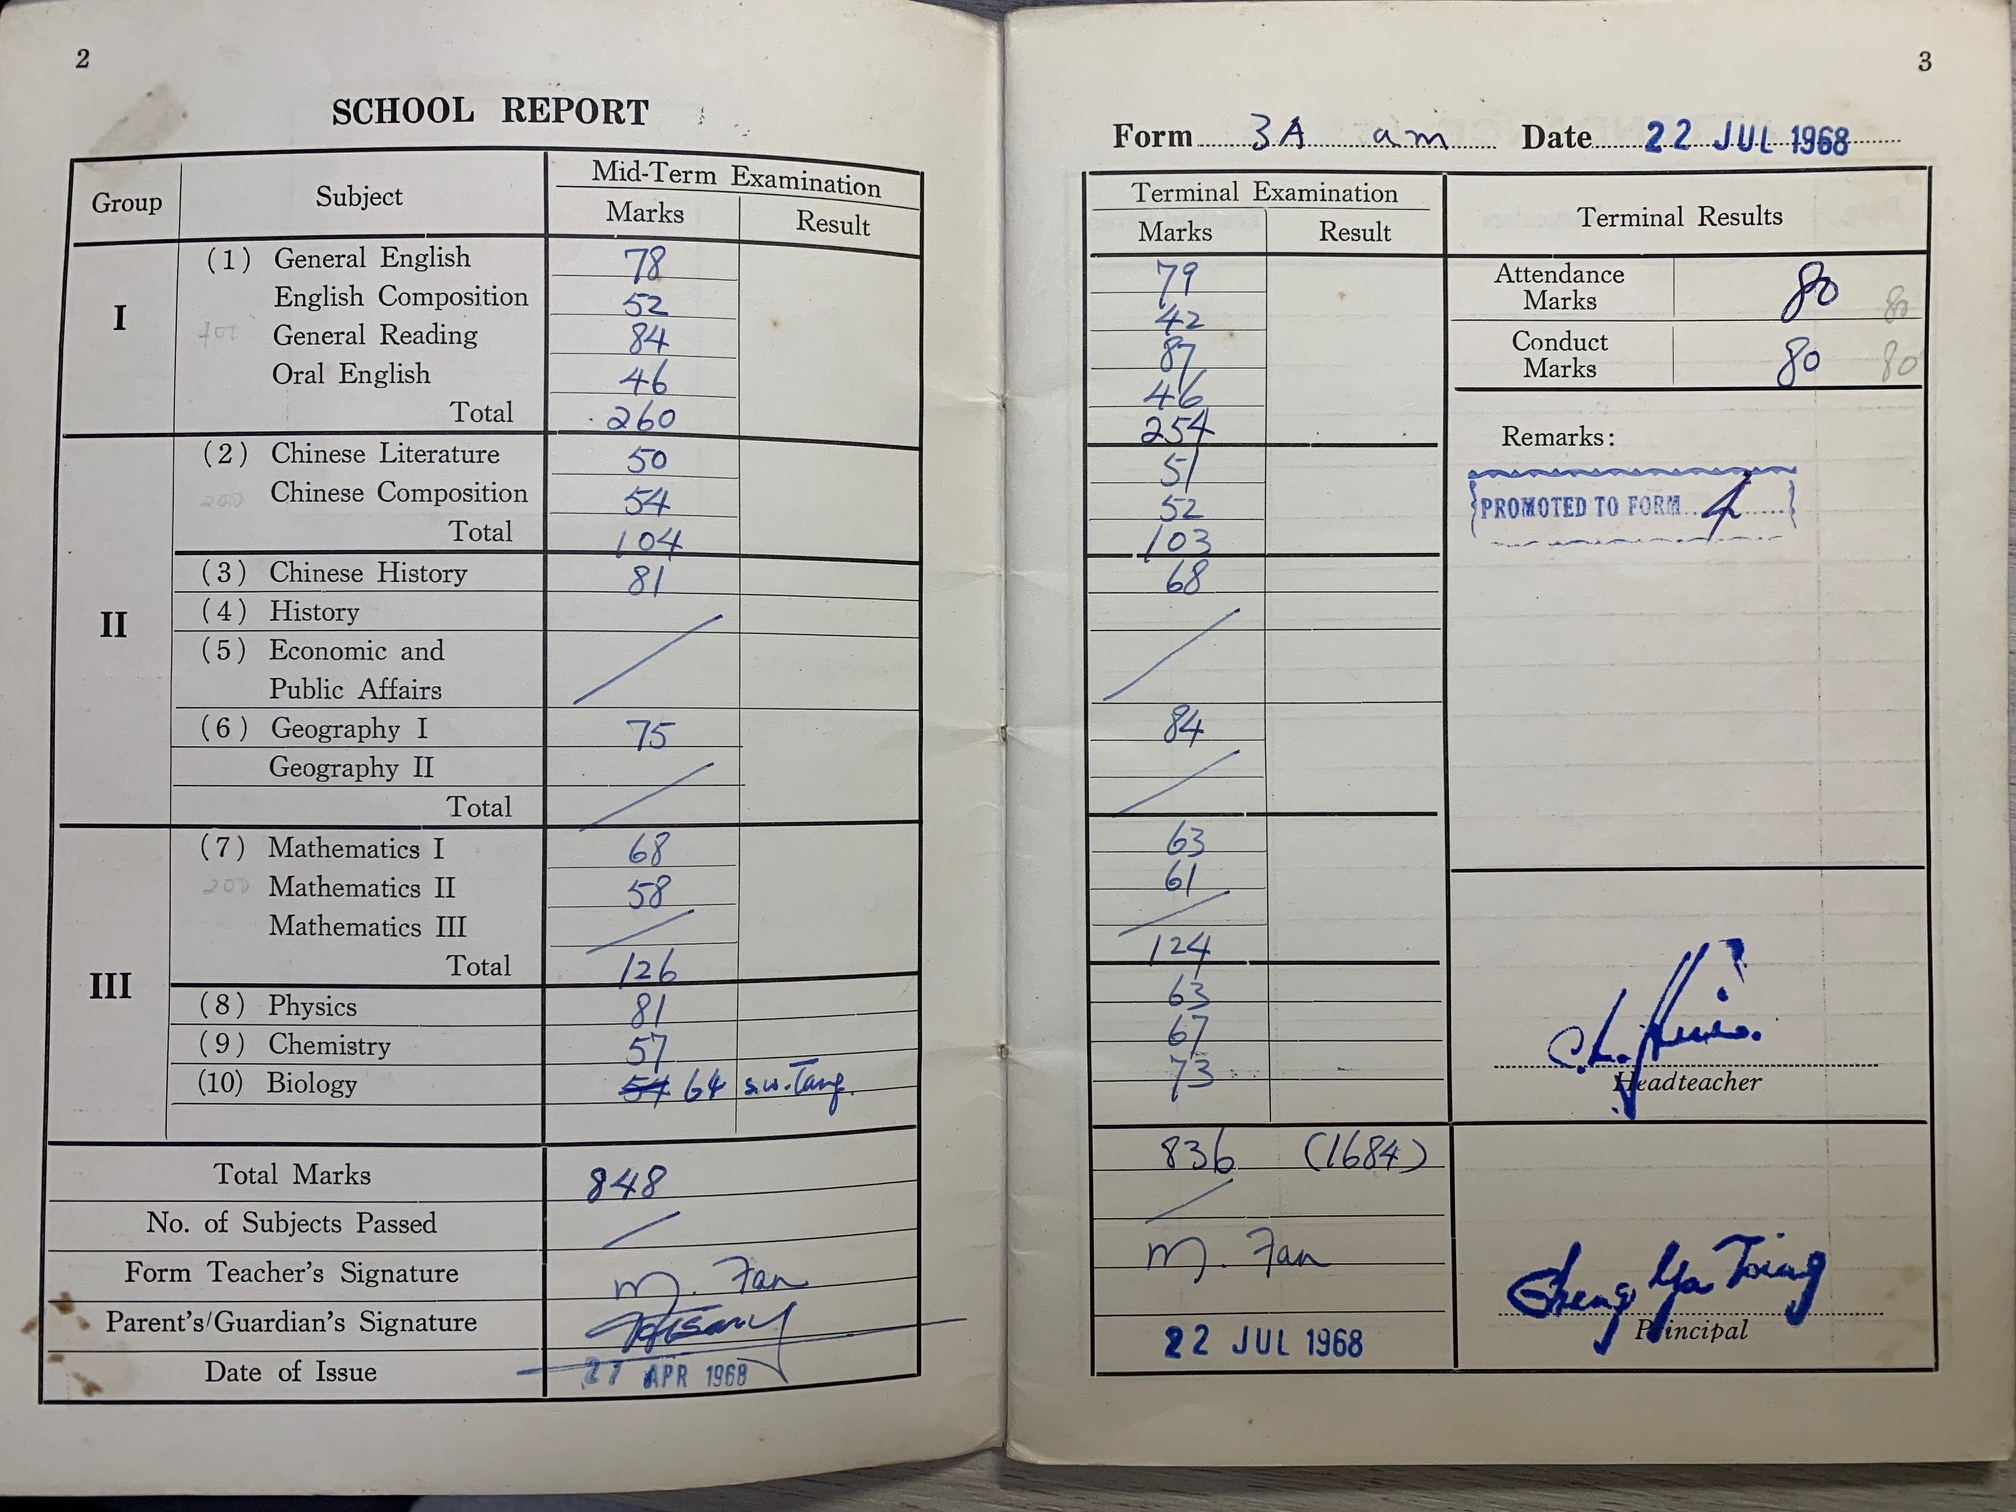 2
SCHOOL REPORT
Group Subject Mid-Term Examination
Marks Result
I
(1) General English 78
English Composition 52
400 General Reading 84
Oral English 46
Total 260
II
(2) Chinese Literature 50
200 Chinese Composition 54
Total 104
(3) Chinese History 81
(4) History
(5) Economic and
Public Affairs
(6) Geography I 75
Geography II
Total
III
(7) Mathematics I 68
200 Mathematics II 58
Mathematics III
Total 126
(8) Physics 81
(9) Chemistry 57
(10) Biology 54 64 s.w.Tang.
Total Marks 848
No. of Subjects Passed
Form Teacher's Signature M. Fan
Parent's/Guardian's Signature
Date of Issue 27 APR 1968
3
Form 3A am Date 22 JUL 1968
Terminal Examination Terminal Results
Marks Result
79
42
87
46
254
51
52
103
68
84
63
61
124
63
67
73
836 (1684)
M. Fan
22 JUL 1968
Attendance
Marks 80 80
Conduct
Marks 80 80
Remarks:
PROMOTED TO FORM 4
Headteacher
Sheng Ya Tsing
Principal